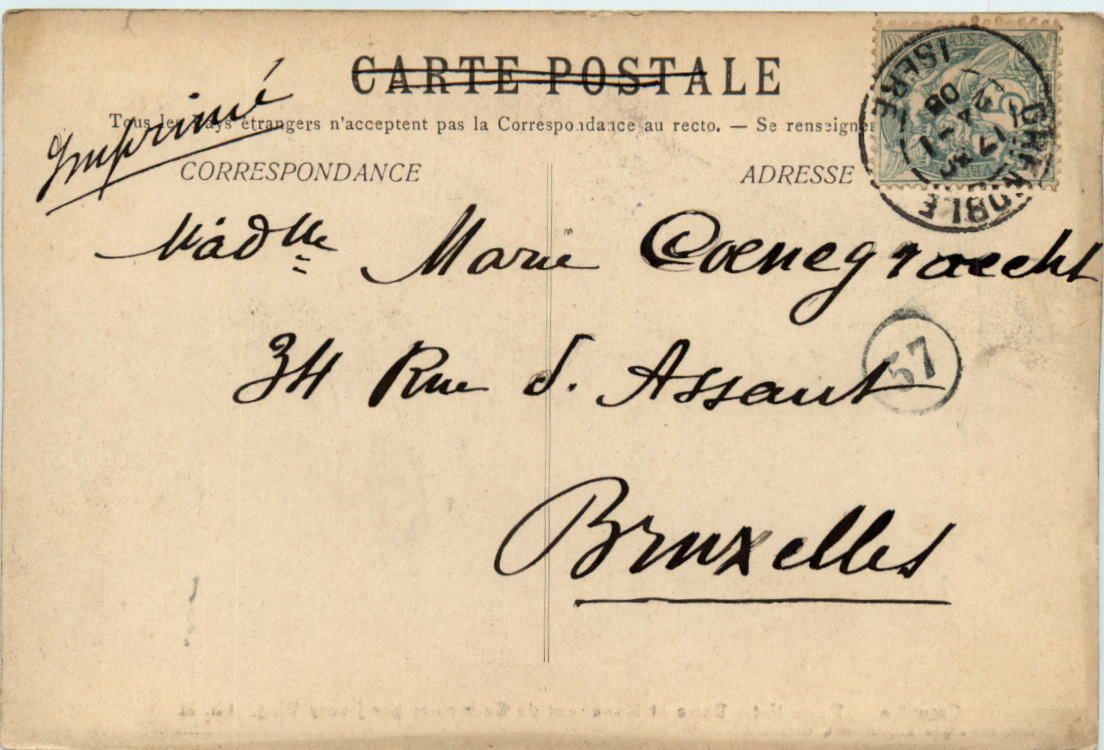 CARTE POSTALE
Imprimé
Tous les Pays étrangers n'acceptent pas la Correspondance au recto. — Se renseigner
CORRESPONDANCE
ADRESSE
GRENOBLE
ISERE
08
5
Madlle Marie Coenegraecht
34 Rue d. Assaut
37
Bruxelles